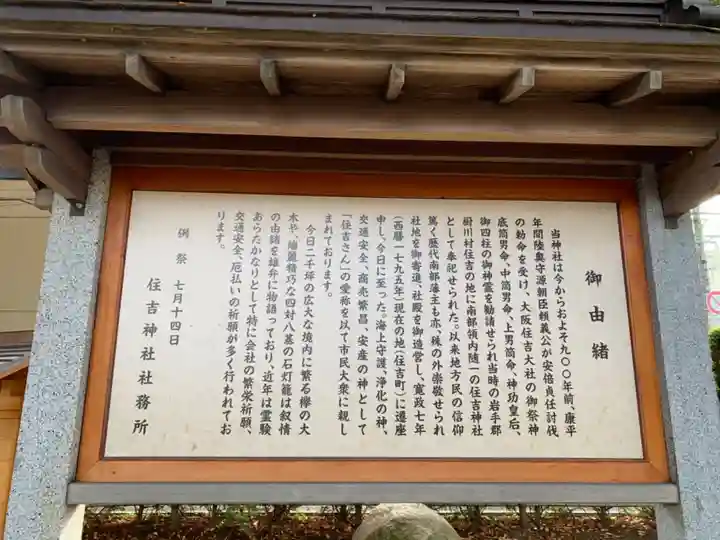 御由緒
当神社は今からおよそ九〇〇年前、康平
年間陸奥守源朝臣頼義公が安倍貞任討伐
の勅命を受け、大阪住吉大社の御祭神
底筒男命、中筒男命、上男筒命、神功皇后、
御四柱の御神霊を勧請せられ当時の岩手郡
厨川村住吉の地に南部領内随一の住吉神社
として奉祀せられた。以来地方民の信仰
篤く歴代南部藩主も亦、殊の外崇敬せられ
社地を御寄進、社殿を御造営し、寛政七年
(西暦一七九五年)現在の地(住吉町)に遷座
申し、今日に至った。海上守護、浄化の神、
交通安全、商売繁昌、安産の神として
「住吉さん」の愛称を以て市民大衆に親し
まれております。
今日二千坪の広大な境内に繁る欅の大
木や、端麗精巧な四対八基の石灯籠は叙情
の由緒を雄弁に物語っており、近年は霊験
あらたかなりとして特に会社の繁栄祈願、
交通安全、厄払いの祈願が多く行われてお
ります。
例祭 七月十四日
住吉神社社務所